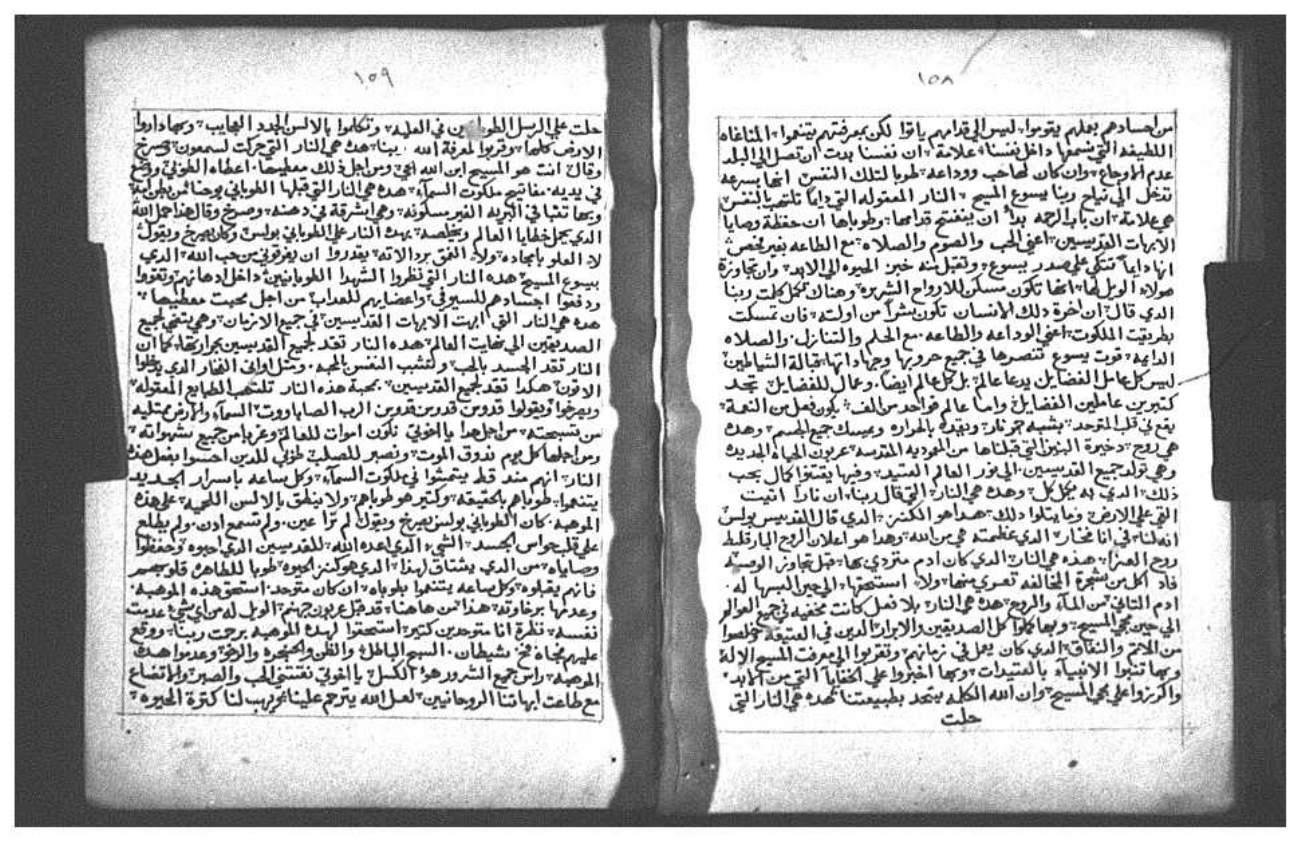 ١٥٨
من اجسادهم بعملهم يقوموا٠ ليس الي قدامهم ياتوا لكن بمعرفتهم يتنعموا٠ المناغاه
اللطيفه التي نسمعها داخل نفسنا٠ علامة٠ ان نفسنا بدت ان تصل الي البلد
عدم الاوجاع٠ وان كان لصاحب ووداعه٠ طوبا لتلك النفس انها بسرعه
تدخل الي نياح ربنا يسوع المسيح٠ النار المعقوله التي دايما تلتهب بالنفس
هي علامة٠ ان باب الرحمه بدأ ان ينفتح قدامها٠ وطوباها ان حفظة وصايا
الابهات القديسين٠ اعني الحب والصوم والصلاه٠ مع الطاعه بغير فحص
انها دايما تتكي علي صدر يسوع٠ وتقبل منه خبز الحيوه الي الابد٠ وان تجاوزة
هولاء الويل لها٠ انها تكون مسكن للارواح الشريره٠ وهناك تكمل كلمت ربنا
الدي قال٠ ان اخرة دلك الانسان تكون بشراً من اولته٠ فان تمسكت
بطريقت الملكوت٠ اعني الوداعه والطاعه٠ مع الحلم والتنازل٠ والصلاه
الدايمه٠ قوت يسوع تنصرها في جميع حروبها وجهاداتها٠ قبالة الشياطين
ليس كل عامل الفضايل يدعا عالم٠ بل كل عالم ايضا٠ وعمال للفضايل٠ تجد
كتيرين عاملين الفضايل٠ واما عالم فواحد من الف٠ يكون فعل من النعمة٠
يقع في قلب المتوحد٠ بشبه جو نار٠ ويقده بالحراره ويمسك جميع الجسم٠ وهده
هي روح٠ دخيرة البنين التي قبلناها من المعموديه المقدسه٠ عربون الحياه الجديده
وهي تولد جميع القديسين٠ الي نور العالم العتيد٠ وفيها يقتنوا كمال يحب
ذلك٠ الدي له يكمل كل٠ وهده هي النار٠ التي قال ربنا٠ ان نارا اتيت
القي علي الارض٠ وما يتلوا دلك٠ هدا هو الكنز٠ الدي قال القديس بولس
انه لنا٠ في انا فخار٠ الدي عظمته هي من الله٠ وهدا هو اعلان الروح البارقليط
روح العزا٠ هذه هي النار٠ الدي كان ادم متردي بها٠ قبل تجاوز الوصيه
فلد اكل من شجرة المخالفه تعري منها٠ ولا استحقها٠ الي حين البسها له
ادم التاني٠ من الماء والروح٠ هده هي النار٠ بلا فعل كانت مخفيه في جميع العوالم
الي حين مجي المسيح٠ وبها كملوا كل الصديقين والابرار٠ الدين في العتيقة وخلصوا
من الاتم والنفاق٠ الدي كان يعمل في زمانهم٠ وتقربوا الي معرفت المسيح الاله
وبها تنبوا الانبياء بالعتيدات٠ وبها اخبروا علي الخفايا٠ التي من الابد٠
واكرزوا علي مجي المسيح٠ وان الله الكلمه يتحد بطبيعتنا٠ هده هي النار التي
حلت
١٥٩
حلت علي الرسل في العليه٠ وتكلموا بالالسن الجدد العجايب٠ وبها داروا
الارض كلها٠ وقربوا لمعرفة الله ربنا٠ هده هي النار التي حركت لسمعون٠ وصرخ
وقال انت هو المسيح ابن الله الحي٠ ومن اجل ذلك معطيها٠ اعطاه الطوبي ووضع
في يديه٠ مفاتيح ملكوت السماء٠ هده هي النار التي قبلها الطوباني يوحنا من بطن امه
وبها تنبا في البريه الغير مسكونه٠ وهي اشرقة في دهنه٠ وصرخ وقال هدا حمل الله
الدي يحمل خطايا العالم ويخلصه٠ بهده النار علي الطوباني بولس وكان يصرخ ويقول
لا العلو بامجاده٠ ولا العمق يقدروا ان يفرقوني من حب الله٠ الدي
بيسوع المسيح٠ هده النار التي نظروا الشهدا الطوبانيين داخل ادهانهم وتقووا
ودفعوا اجسادهم للسيوف٠ واعضايهم للعداب من اجل محبت معطيها٠
هده هي النار التي ابرت الابهات القديسين٠ في جميع الازمان٠ وهي تنقي لجميع
الصديقين الي نهايت العالم٠ هده النار تقد لجميع القديسين بحرارتها٠ كما ان
النار تقد الجسد بالحب٠ وتنشب النفس بالمحبه٠ ومتل اواني الفخار الدي يدخلوا
الاتون٠ هكدا تقد لجميع القديسين٠ بمحبة هذه النار تلتهب الطبايع المعقوله٠
ويصرخوا ويقولوا قدوس قدوس قدوس الرب الصاباووت٠ السماء والارض ممتليه
من تسبحته٠ من اجل هدا يا اخوتي نكون اموات للعالم٠ وغربا من جميع شهواته٠
ومن اجلها كل يوم ندوق الموت٠ ونصبر للصلب٠ طوبي للدين احسوا بفعل هده
النار٠ انهم مند قط يتمشوا في ملكوت السماء٠ وكل ساعه باسرار الجديد
يتنعموا٠ طوباهم بالحقيقه٠ وكتير هو طوباهم٠ ولا ينطق بالالسن اللحميه٠ علي هذه
الموهبه٠ كان الطوباني بولس يصرخ ويقول لم ترا عين٠ ولم تسمع ادن٠ ولم يطلع
علي قلب حواس الجسد٠ الشيء الدي اعده الله٠ للقديسين الدي احبوه٠ وحفظوا
وصاياه٠ من الدي يشتاق لهدا٠ الدي هو كنز الحيوه٠ طوبا للطاهره قلوبهم
فانهم يقبلوه٠ وكل ساعه يتنعموا بقلوبهم٠ ان كان متوحد استحق هده الموهبه٠
وعدمها برخاوته٠ هدا من هاهنا٠ قد قبل عربون جهنم٠ الويل له من اي شي عدمت
نفسه٠ نظرة انا متوحدين كتير٠ استحقوا لهده الموهبه برحمت ربنا٠ ووقع
عليهم بشيطان٠ السبح الباطل٠ والظن والحنجره والزهو٠ وعدموا هده
الموهبه٠ راس جميع الشرور هو الكسل٠ يا اخوتي نقتني الحب والصبر٠ والاتضاع
مع طاعت ابهاتنا الروحانيين٠ لعل الله يترحم علينا٠ ويهب لنا كترة الحيوه٠